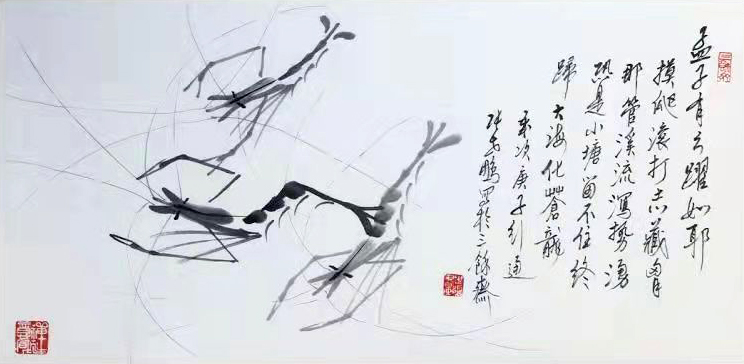 孟子有云躍如耶
摸爬滾打志藏胷
那管溪流瀉勢湧
恐是小塘畄不住終
歸大海化蒼龍
次庚子引
鵬写於三餘齋